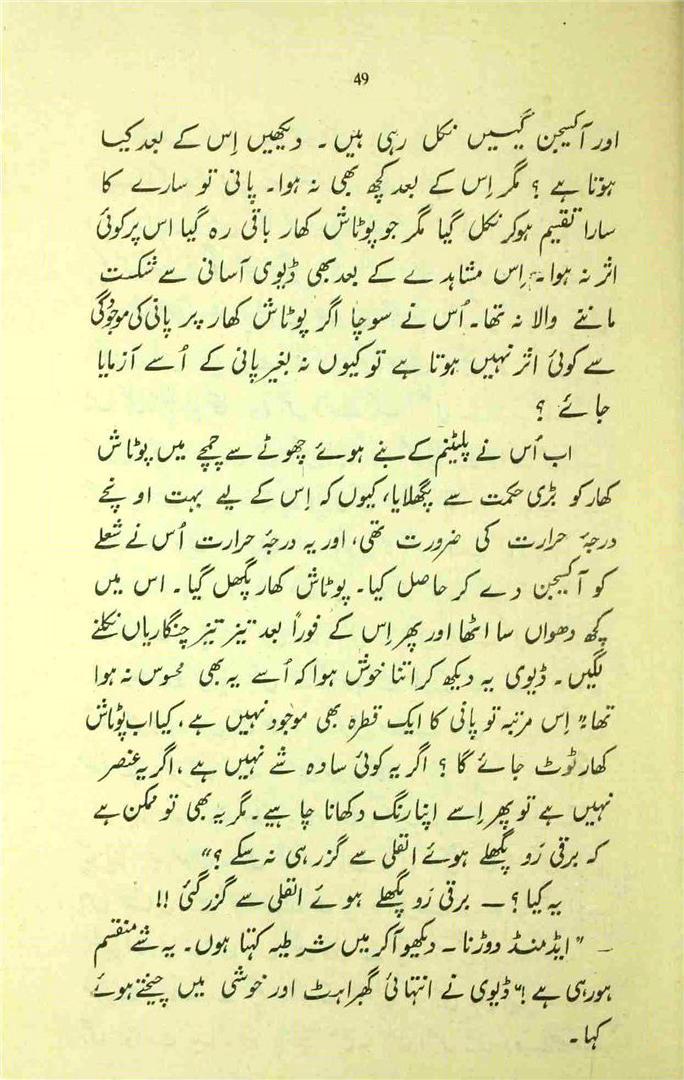 49
اور آکسیجن گیسیں نکل رہی ہیں۔ دیکھیں اِس کے بعد کیا
ہوتا ہے؟ مگر اِس کے بعد کچھ بھی نہ ہوا۔ پانی تو سارے کا
سارا تقسیم ہوکر نکل گیا مگر جو پوٹاش کھار باقی رہ گیا اس پر کوئی
اثر نہ ہوا۔ اِس مشاہدے کے بعد بھی ڈیوی آسانی سے شکست
ماننے والا نہ تھا۔ اُس نے سوچا اگر پوٹاش کھار پر پانی کی موجودگی
سے کوئی اثر نہیں ہوتا ہے تو کیوں نہ بغیر پانی کے اُسے آزمایا
جائے؟
اب اُس نے پلیٹنم کے بنے ہوئے چھوٹے سے چمچے میں پوٹاش
کھار کو بڑی حکمت سے پگھلایا، کیوں کہ اِس کے لیے بہت اونچے
درجۂ حرارت کی ضرورت تھی، اور یہ درجۂ حرارت اُس نے شعلے
کو آکسیجن دے کر حاصل کیا۔ پوٹاش کھار پگھل گیا۔ اس میں
کچھ دھواں سا اٹھا اور پھر اِس کے فوراً بعد تیز تیز چنگاریاں نکلنے
لگیں۔ ڈیوی یہ دیکھ کر اتنا خوش ہوا کہ اُسے یہ بھی محسوس نہ ہوا
تھا: "اِس مرتبہ تو پانی کا ایک قطرہ بھی موجود نہیں ہے، کیا اب پوٹاش
کھار ٹوٹ جائے گا؟ اگر یہ کوئی سادہ شے نہیں ہے، اگر یہ عنصر
نہیں ہے تو پھر اِسے اپنا رنگ دکھانا چاہیے۔ مگر یہ بھی تو ممکن ہے
کہ برقی رَو پگھلے ہوئے القلی سے گزر ہی نہ سکے؟"
یہ کیا؟ — برقی رَو پگھلے ہوئے القلی سے گزر گئی!!
— "ایڈمنڈ دوڑنا — دیکھو آکر میں شرطیہ کہتا ہوں۔ یہ شے منقسم
ہو رہی ہے!" ڈیوی نے انتہائی گھبراہٹ اور خوشی میں چیختے ہوئے
کہا۔